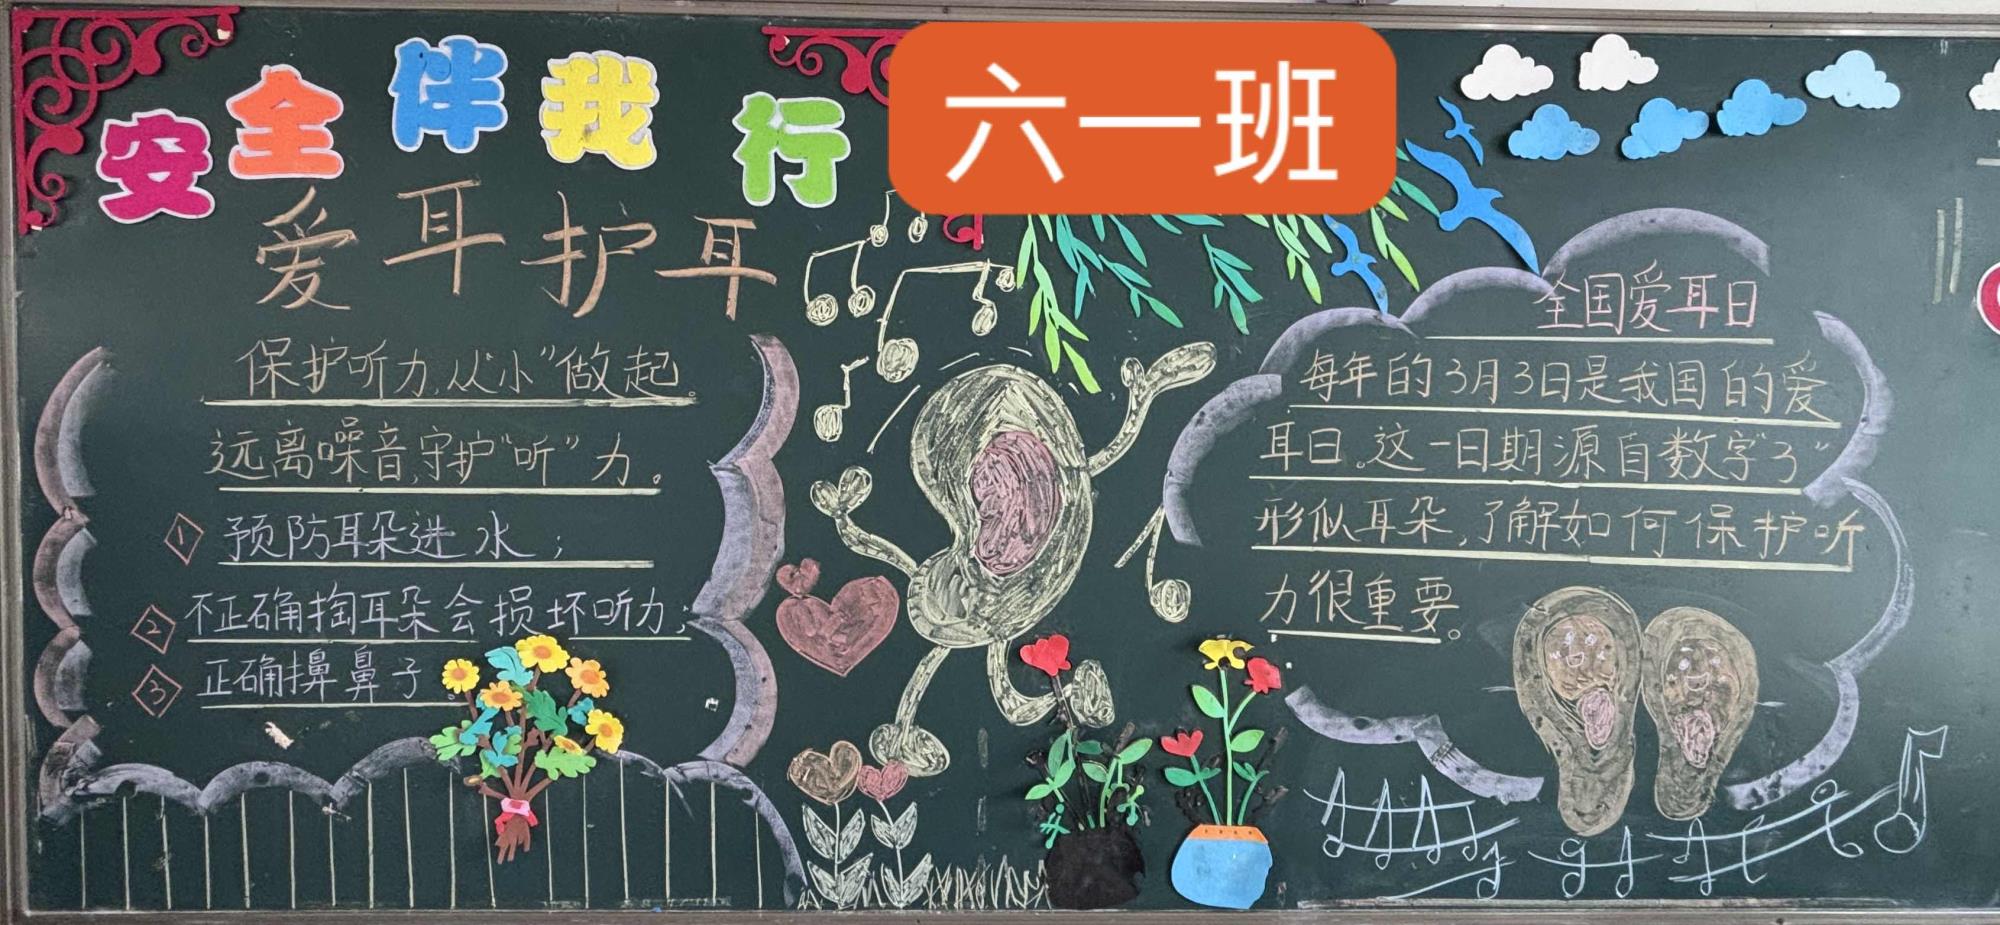 安全伴我行
六一班
爱耳护耳
保护听力,从“小”做起。
远离噪音,守护“听”力。
1 预防耳朵进水;
2 不正确掏耳朵会损坏听力;
3 正确擤鼻子
全国爱耳日
每年的3月3日是我国的爱
耳日。这一日期源自数字“3”
形似耳朵,了解如何保护听
力很重要。